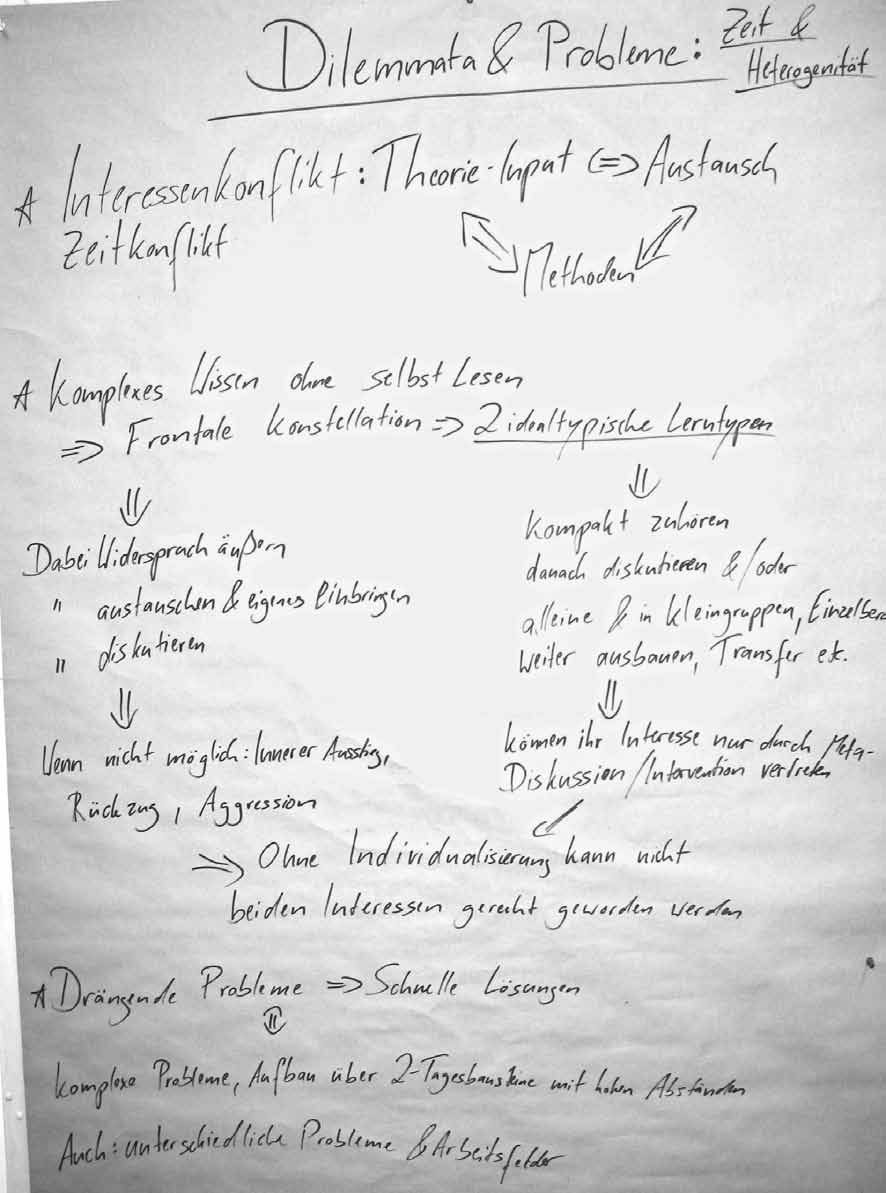 Dilemmata & Probleme: Zeit &
Heterogenität
* Interessenkonflikt: Theorie-Input <=> Austausch
Zeitkonflikt
Methoden
* Komplexes Wissen ohne selbst Lesen
=> Frontale Konstellation => 2 idealtypische Lerntypen
Dabei Widerspruch äußern
" austauschen & eigenes Einbringen
" diskutieren
Wenn nicht möglich: Innerer Ausstieg,
Rückzug, Aggression
Kompakt zuhören
danach diskutieren & /oder
alleine & in Kleingruppen,
weiter ausbauen, Transfer etc.
können ihr Interesse nur durch Meta-
Diskussion/Intervention vertreten
=> Ohne Individualisierung kann nicht
beiden Interessen gerecht geworden werden
* Drängende Probleme => Schnelle Lösungen
komplexe Probleme, Aufbau über 2-Tagesbausteine mit hohen Abständen
Auch: unterschiedliche Probleme & Arbeitsfelder